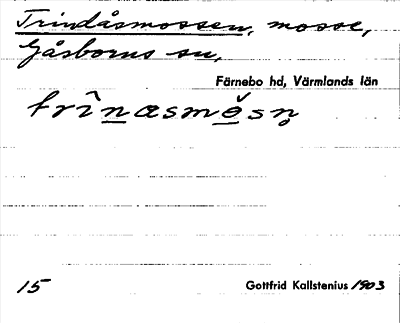 Trindåsmossen, mosse,
Gåsborns sn,
Färnebo hd, Värmlands län
15
Gottfrid Kallstenius 1903